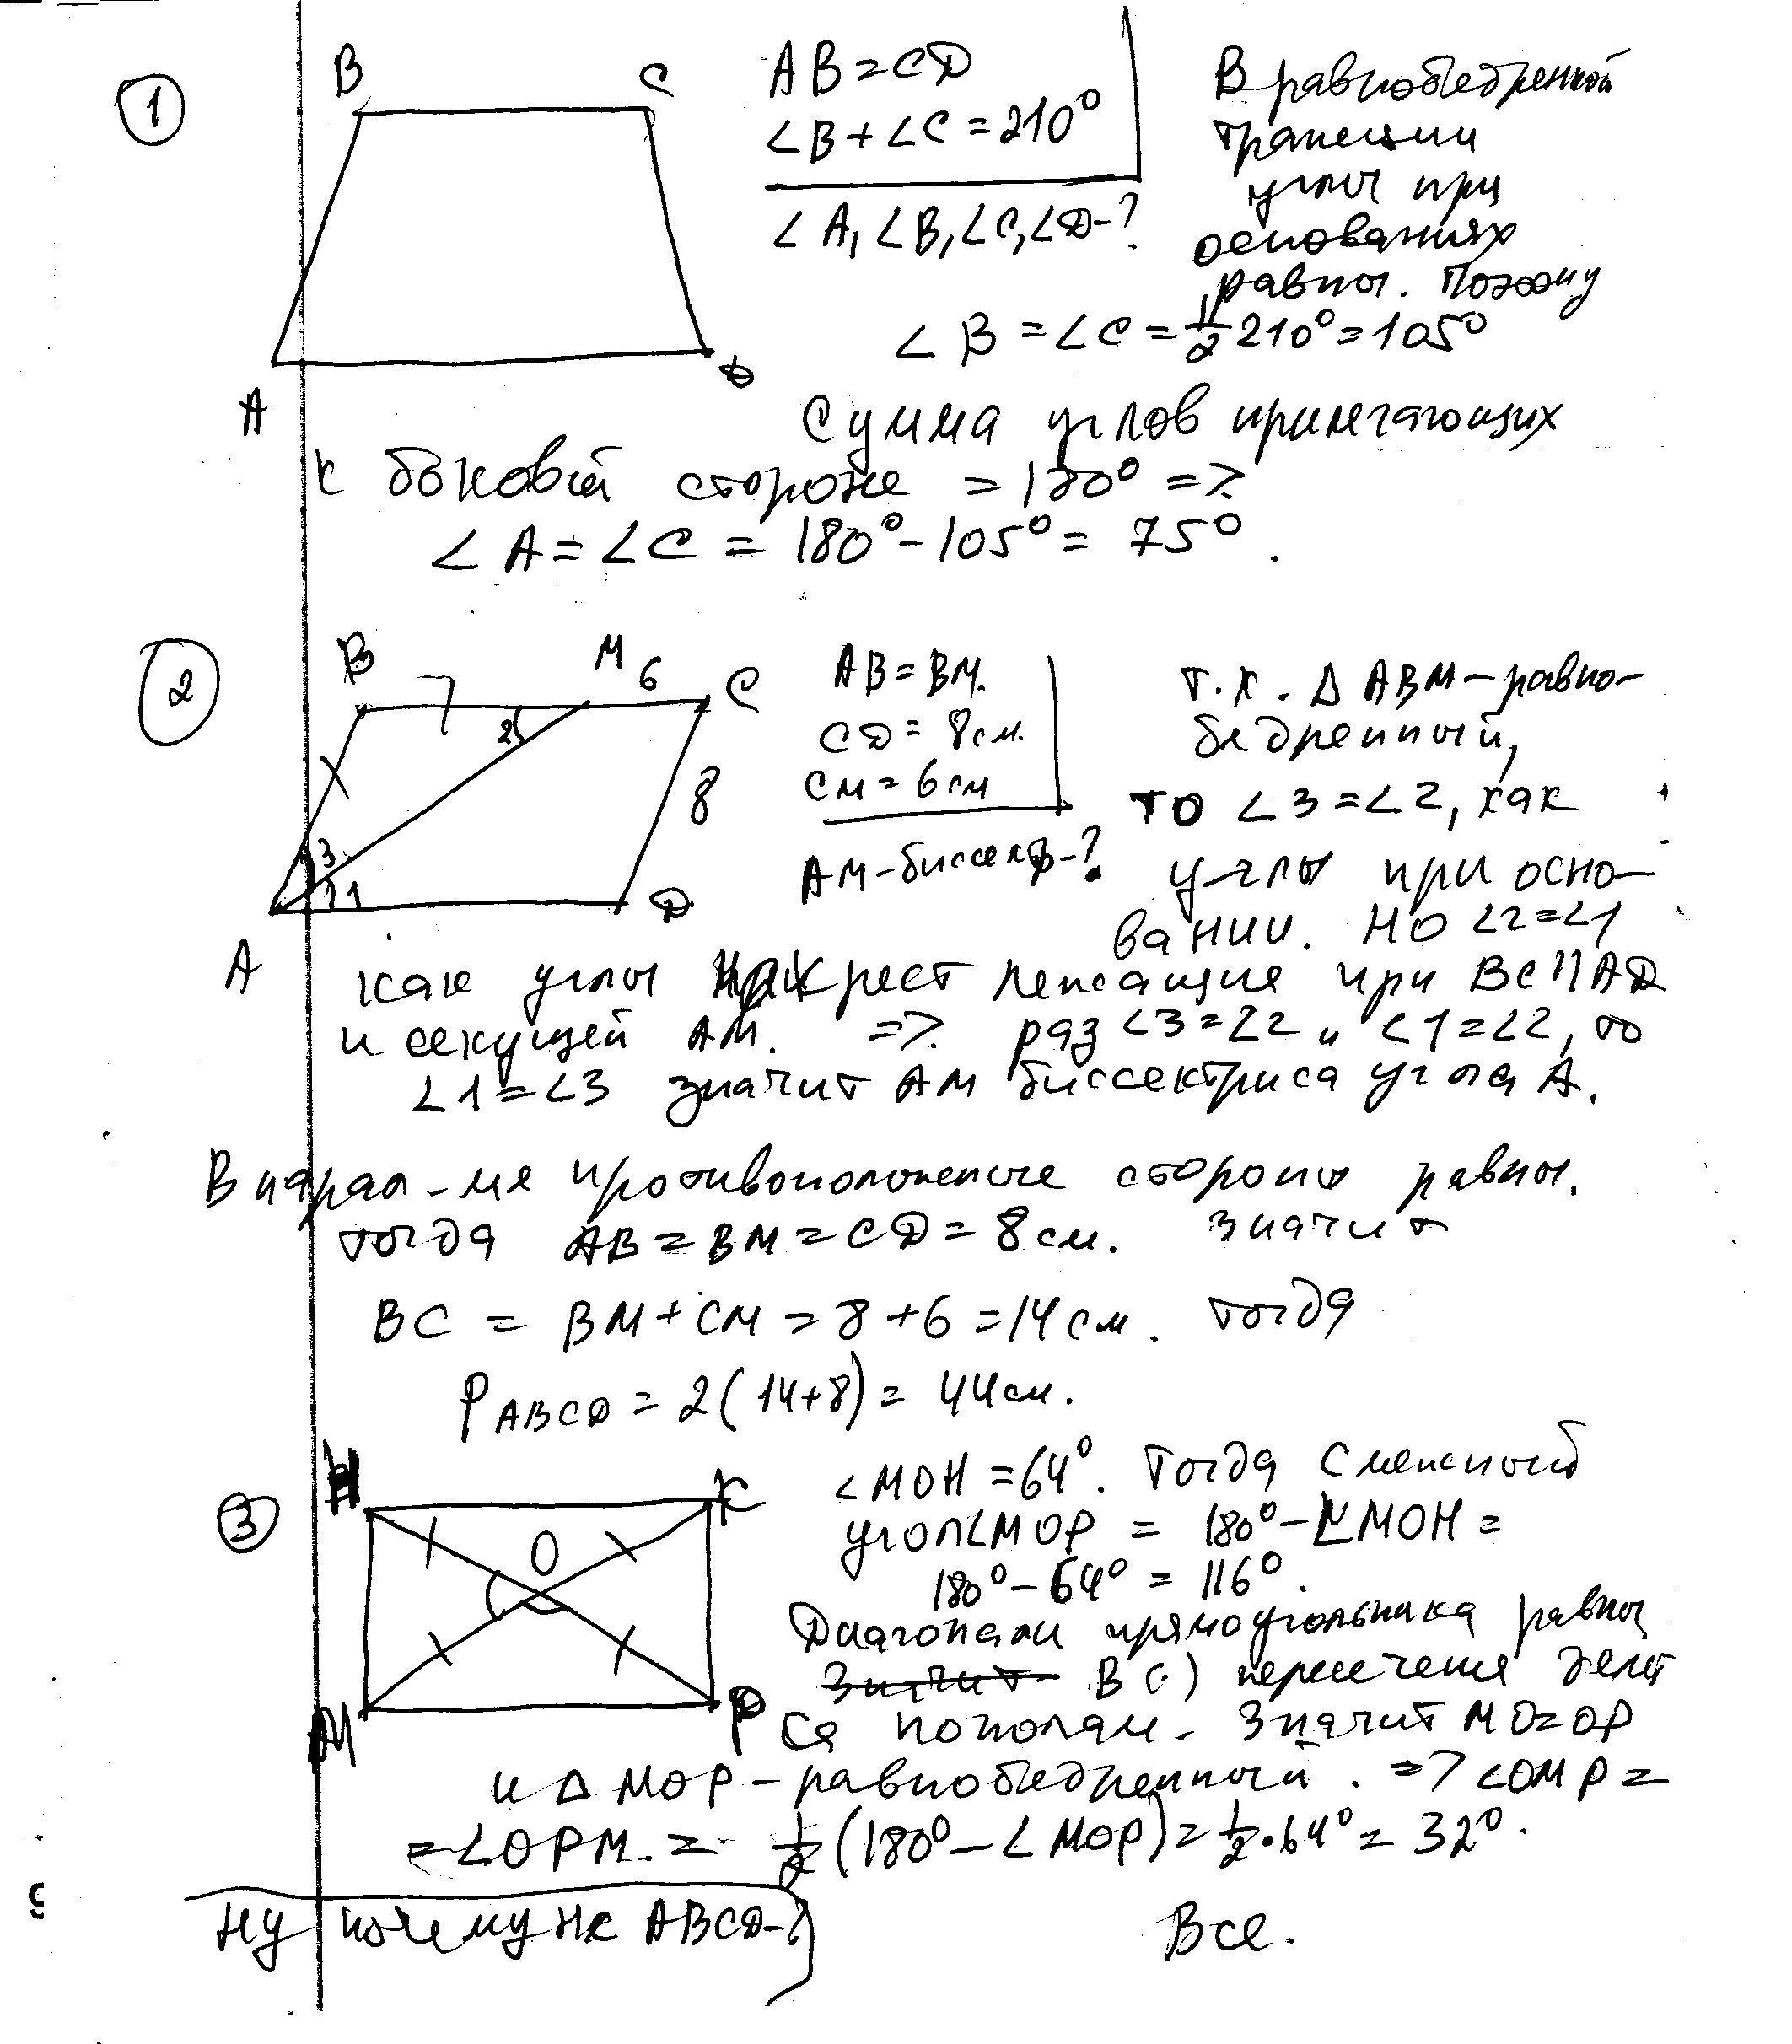 1
B C
A D
AB=CD
∠B+∠C=210°
∠A,∠B,∠C,∠D-?
В равнобедренной
трапеции
углы при
основаниях
равны. Поэтому
∠B=∠C=1/2 210°=105°
Сумма углов прилегающих
к боковой стороне =180° =>
∠A=∠C=180°-105°=75°.
2
B M 6 C
2
8
3
1
A D
AB=BM.
CD=8см.
CM=6см
AM-биссектр-?
т.к. Δ ABM-равно-
бедренный,
то ∠3=∠2, как
углы при осно-
вании. Но ∠2=∠1
как углы накрест лежащие при BC||AD
и секущей AM. => раз ∠3=∠2 и ∠1=∠2, то
∠1=∠3 значит AM биссектриса угла A.
В парал-ме противоположные стороны равны.
тогда AB=BM=CD=8см. значит
BC=BM+CM=8+6=14см. тогда
P ABCD=2(14+8)=44см.
3
H K
O
M P
∠MOH=64°. Тогда смежный
угол∠MOP=180°-∠MOH=
180°-64°=116°.
Диагонали прямоугольника равны
значит В (·) пересечения делят
ся пополам. Значит MO=OP
и Δ MOP-равнобедренный. =>∠OMP=
=∠OPM.=1/2(180°-∠MOP)=1/2·64°=32°.
Ну почему не ABCD-?)
Все.
9